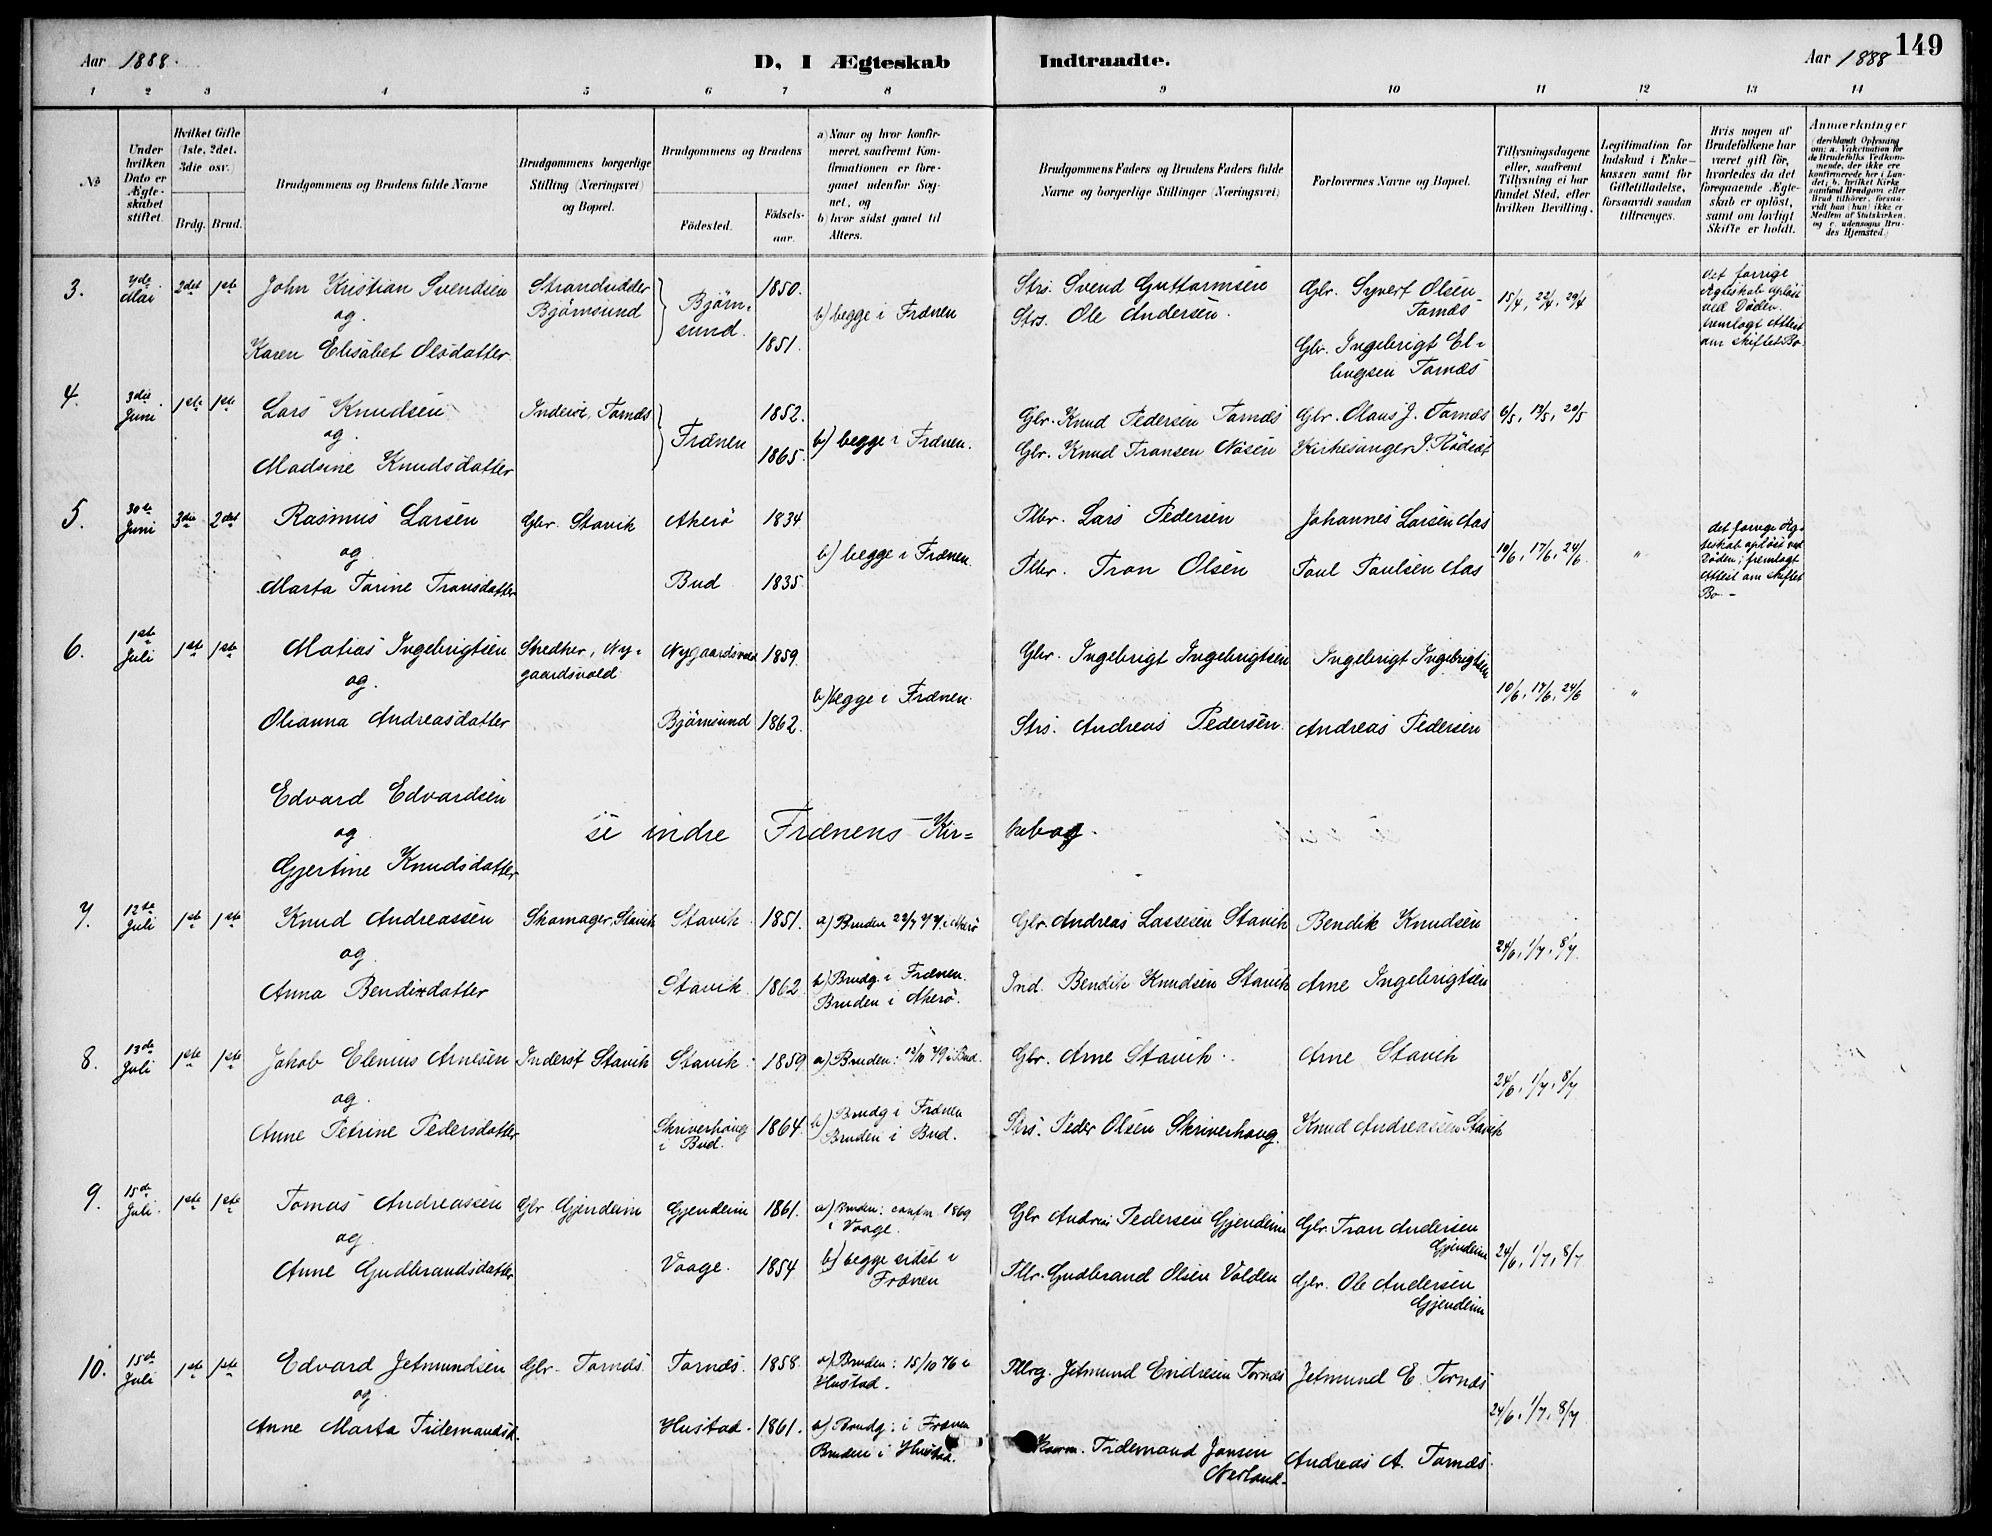 Aar 1888. D, I Ægteskab Indtraadte. Aar 1888 149
1 2 3 4 5 6 7 8 9 10 11 12 13 14
No
Under hvilken Dato er Ægteskabet stiftet.
Hvilket Gifte (1ste, 2det, 3die osv.)
Brdg. Brud.
Brudgommens og Brudens fulde Navne
Brudgommens borgerlige Stilling (Næringsvei) og Bopæl.
Brudgommens og Brudens
Fødested. Fødselsaar.
a) Naar og hvor konfirmeret, saafremt Konfirmationen er foregaaet udenfor Sognet, og
b) hvor sidst gaaet til Alters.
Brudgommens Faders og Brudens Faders fulde Navne og borgerlige Stillinger (Næringsvei)
Forlovernes Navne og Bopæl.
Tillysningsdagene eller, saafremt Tillysning ei har fundet Sted, efter hvilken Bevilling.
Legitimation for Indskud i Enkekassen samt for Giftetilladelse, forsaavidt saadan tiltrænges.
Hvis nogen af Brudefolkene har været gift før, hvorledes da det foregaaende Ægteskab er opløst, samt om lovligt Skifte er holdt.
Anmærkninger
(deriblandt Oplysning om: a. Vakcination for de Brudefolks Vedkommende, der ikke ere konfirmerede her i Landet; b. hvilket Kirkesamfund Brudgom eller Brud tilhører, forsaavidt han (hun) ikke er Medlem af Statskirken, og c. udensogns Brudes Hjemsted.)
3. 7de Mai 2det 1ste John Kristian Svendsen Strandsidder Bjørnsund Bjørnsund 1850. b) begge i Frænen Strs. Svend Guttormsen Glr. Syvert Olsen Tornæs 15/4, 22/4, 29/4
og
Karen Elisabet Olsdatter 1851. Strs. Ole Andersen. Glr. Ingebrigt Ellingsen Tornæs
det forrige Ægteskab opløst ved Døden. fremlagt Attest om skiftet Bo.
4. 3die Juni 1ste 1ste Lars Knudsen Inderst, Tornæs Frænen 1852. b) begge i Frænen. Gbr. Knud Pedersen Tornæs Gbr. Olaus J. Tornæs 6/5, 13/5, 20/5
og
Madsine Knudsdatter 1865. Gbr. Knud Fransen Nåsen Kirkesanger J. Rødsæt
5. 30te Juni 3die 2det Rasmus Larsen Gbr. Stavik Akerø 1834 b) begge i Frænen. Plbr. Lars Pedersen Johannes Larsen Aas 10/6, 17/6, 24/6 "
og
Marta Tarine Transdatter Bud 1835. Plbr. Tron Olsen Poul Poulsen Aas
det forrige Ægteskab opløst ved Døden; fremlagt Attest om skiftet Bo. -
6. 1ste Juli 1ste 1ste Matias Ingebrigtsen Snedker, Nygaardsvold Nygaardsvold 1859. b) begge i Frænen. Gbr. Ingebrigt Ingebrigtsen Ingebrigt Ingebrigtsen 10/6, 17/6, 24/6 "
og
Olianna Andreasdatter Bjørnsund 1862. Strs. Andreas Pedersen. Andreas Pedersen
Edvard Edvardsen
og se indre Frænens Kirkebog.
Gjertine Knudsdatter
7. 12te Juli 1ste 1ste Knud Andreassen Skomager, Stavik Stavik 1851. a) Bruden 22/7 77 i Akerø Gbr. Andreas Lassesen Stavik Bendik Knudsen 24/6, 1/7, 8/7.
og
Anna Bendixdatter Stavik 1862 b) Brudg. i Frænen. Bruden i Akerø. Ind. Bendik Knudsen Stavik Arne Ingebrigtsen
8. 13de Juli 1ste 1ste Jakob Elenius Arnesen Inderst Stavik Stavik. 1859 a) Bruden: 12/10 79 i Bud. Gbr. Arne Stavik. Arne Stavik 24/6, 1/7, 8/7
og
Anne Petrine Pedersdatter Skriverhoug i Bud. 1864. b) Brudg i Frænen Bruden i Bud. Strs. Peder Olsen Skriverhoug. Knud Andreassen Stavik
9. 15de Juli. 1ste 1ste Tomas Andreassen Gbr Gjendeim Gjendeim 1861. a) Bruden: confirm. 1869 i Vaage. Gbr Andreas Pedersen Gjendeim Gbr. Tron Andersen Gjendeim 24/6, 1/7, 8/7
og
Anne Gudbrandsdatter Vaage. 1854 b) begge sidst i Frænen Plbr. Gudbrand Olsen Volden Gbr. Ole Andersen Gjendeim
10. 15de Juli 1ste 1ste Edvard Jetmundsen Gbr. Tornæs. Tornæs. 1858. a) Bruden: 15/10 76 i Hustad. Plbrg. Jetmund Endresen Tornæs Jetmund E. Tornæs 24/6, 1/7, 8/7
og
Anne Marta Tidemandsd. Hustad. 1861. b) Brudg: i Frænen Bruden i Hustad. Tidemand Jonsen Nerland. Andreas A. Tornæs.